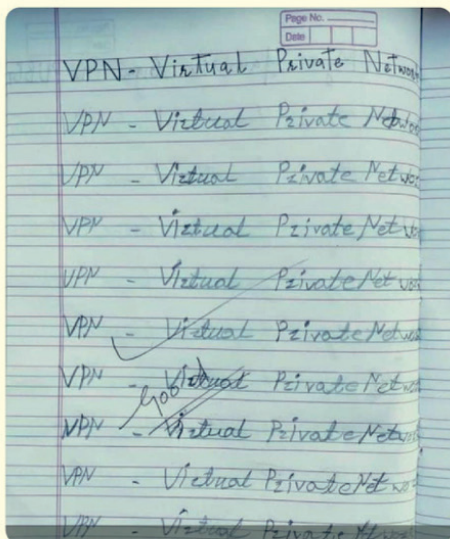 Page No.
Date
VPN - Virtual Private Network
VPN - Virtual Private Network
VPN - Virtual Private Networ
VPN - Virtual Private Netwo
VPN - Virtual Private Net wor
VPN - Virtual Private Networ
VPN - Virtual Private Networ
Good
VPN - Virtual Private Networ
VPN - Virtual Private Net wo
VPN - Virtual Private Networ